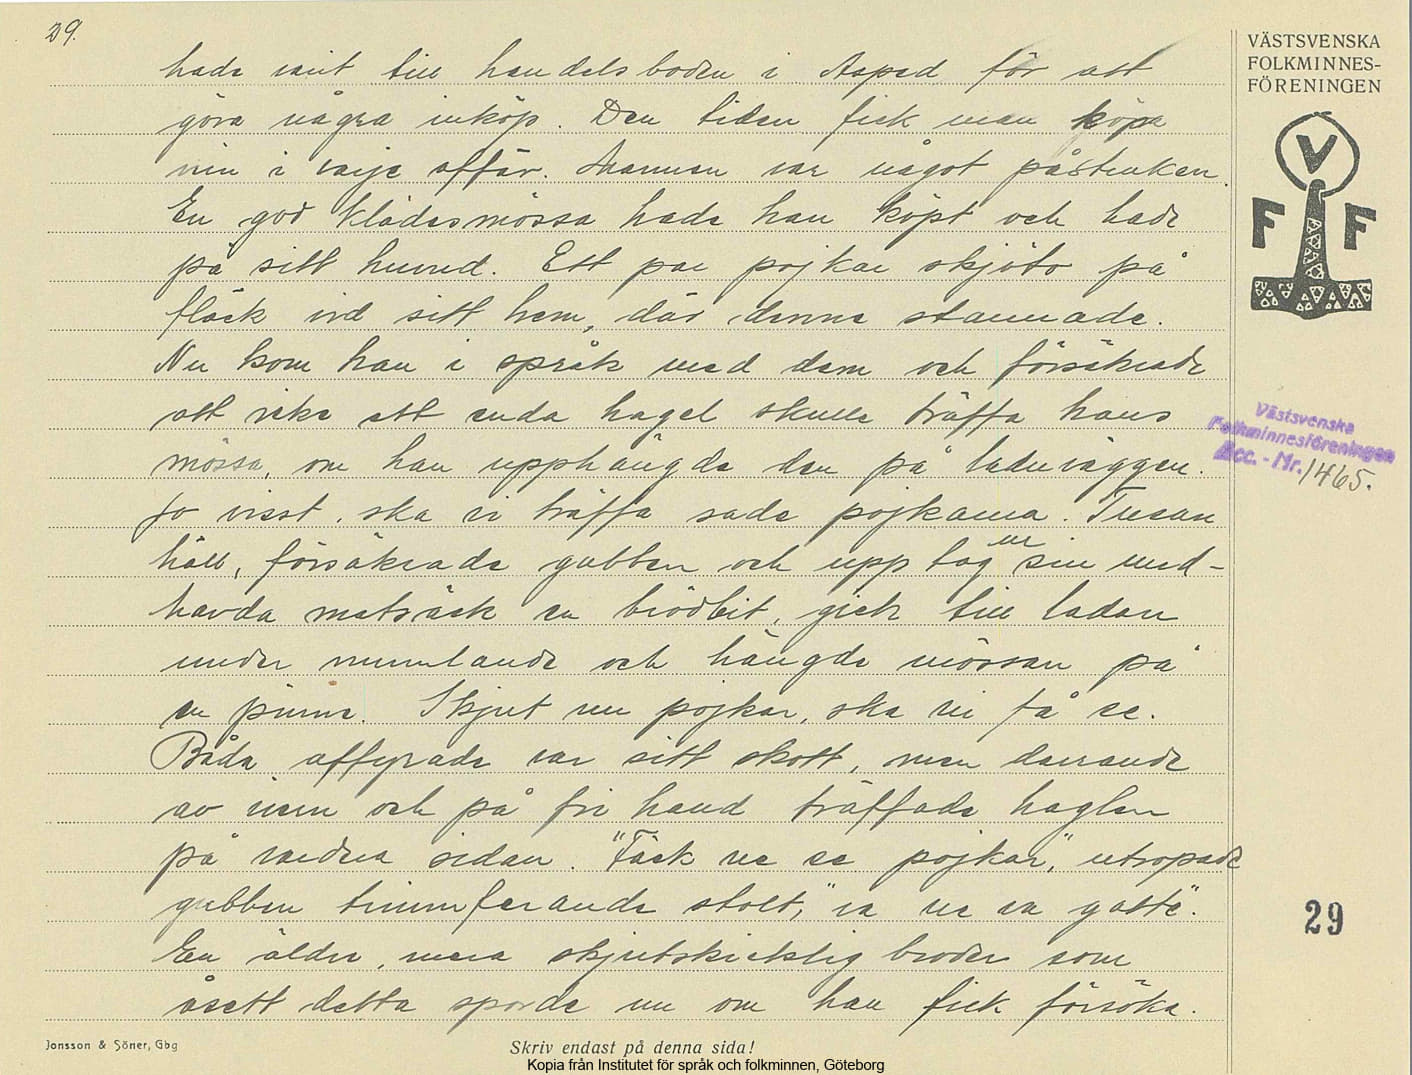 29.
VÄSTSVENSKA
FOLKMINNES-
FÖRENINGEN
hade varit till handelsboden i Aspad för att
göra några inköp. Den tiden fick man köpa
vin i varje affär. Mannen var något påstruken.
En god klädesmössa hade han köpt och hade
på sitt huvud. Ett par pojkar skjöto på
fläck vid sitt hem, där denne stannade.
Nu kom han i språk med dem och försäkrade
att icke ett enda hagel skulle träffa hans
mössa, om han upphängde den på laduväggen.
Jo visst, ska vi träffa sade pojkarna. Tusan
häll, försäkrade gubben och upp tog ur sin med-
havda matsäck en brödbit, gick till ladan
under mumlande och hängde mössan på
en pinne. Skjut nu pojkar, ska vi få se.
Båda affyrade var sitt skott, men darrande
av iver och på fri hand träffade haglen
på vardera sidan. "Fäck ve se pojkar", utropade
gubben triumferande stolt, "va ve va gatte".
En äldre, mera skjutskicklig broder som
åsett detta sporde nu om han fick försöka.
V
F F
VVAVVS
Västsvenska
Folkminnesföreningen
Acc. - Nr. 1465.
29
Jonsson & Söner, Gbg
Skriv endast på denna sida!
Kopia från Institutet för språk och folkminnen, Göteborg